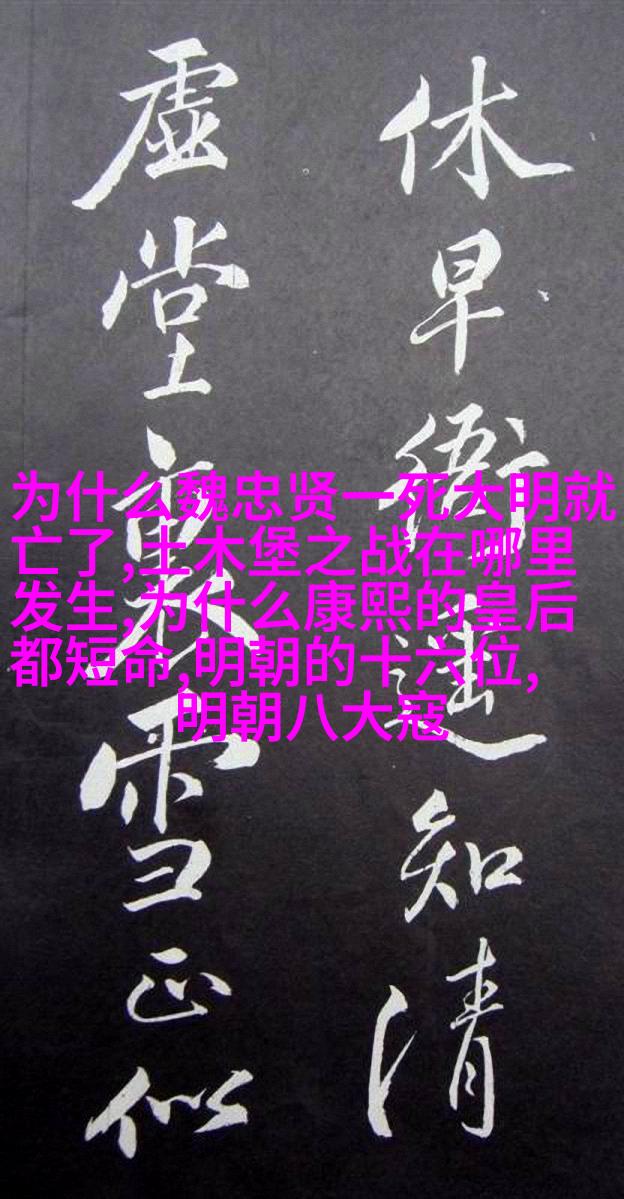 休早衙遥知清
虚堂雪正似
为什么魏忠贤一死大明就
亡了,土木堡之战在哪里
发生,为什么康熙的皇后
都短命,明朝的十六位,
明朝八大寇